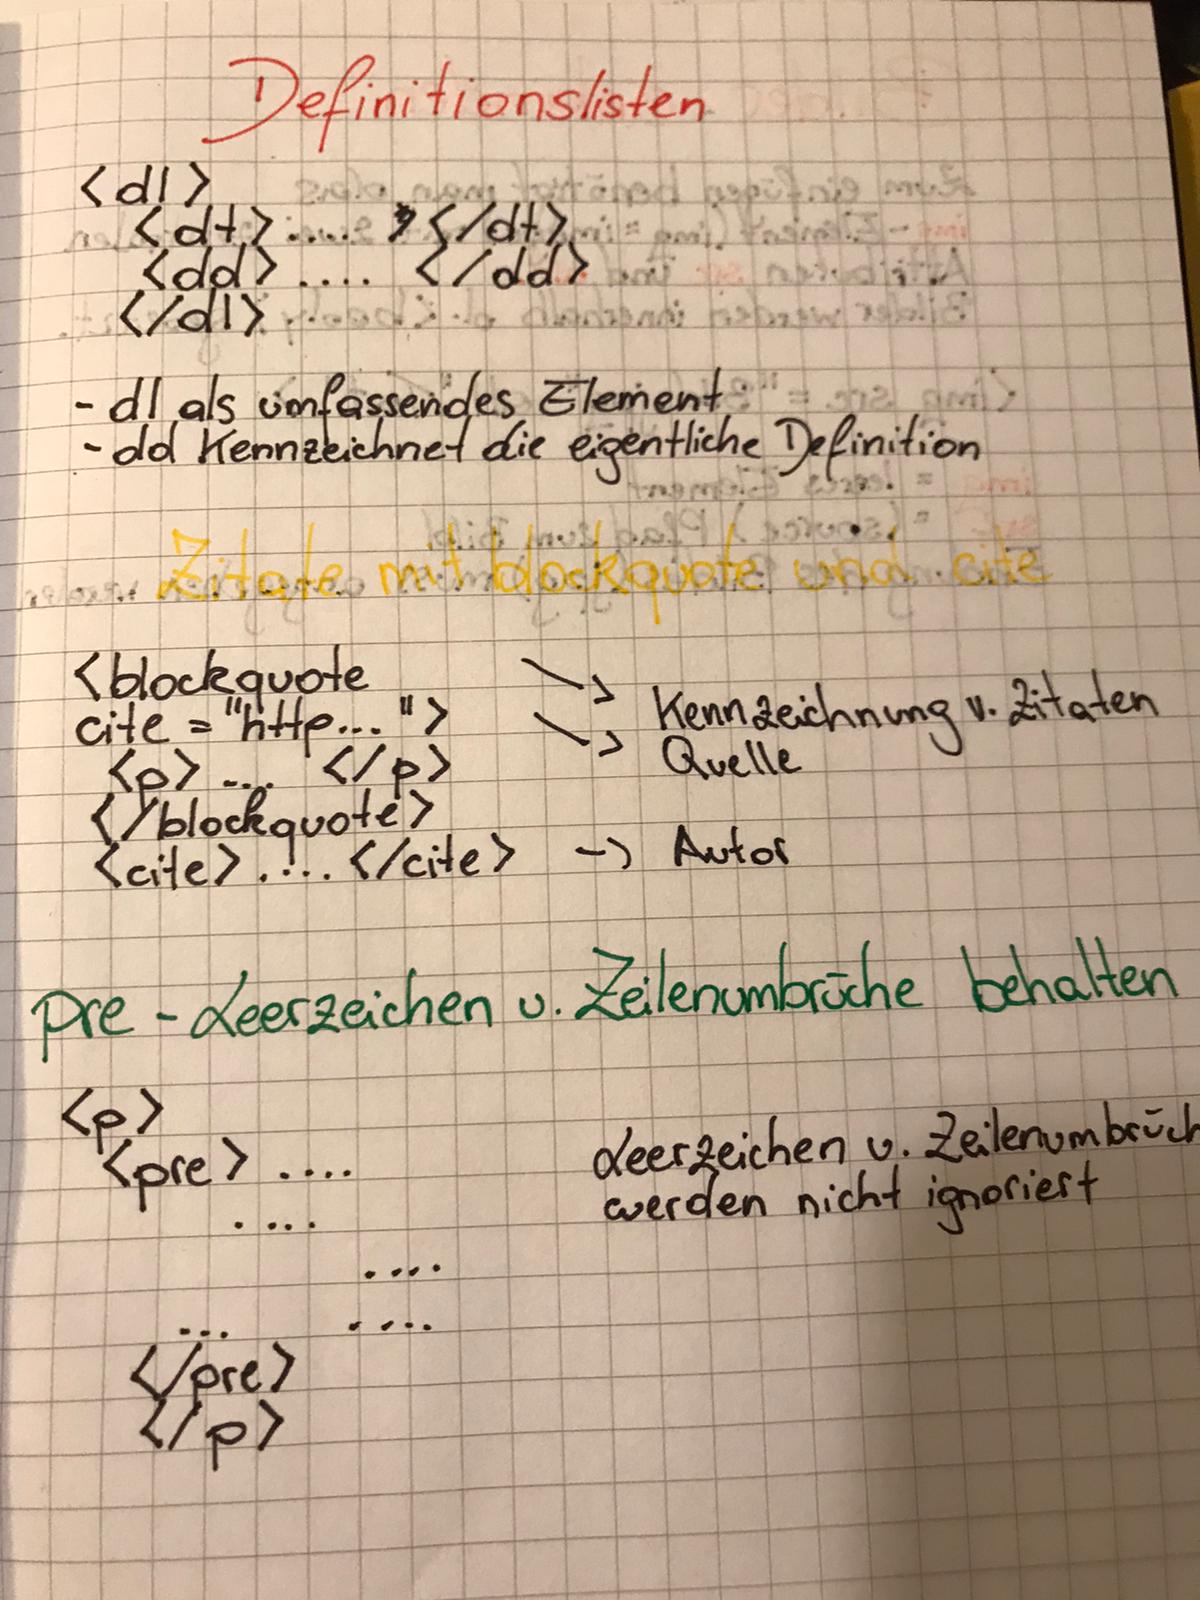 Definitionslisten
<dl>
<dt> ..... </dt>
<dd> .... </dd>
</dl>
- dl als umfassendes Element
- dd Kennzeichnet die eigentliche Definition
Zitate mit blockquote und cite
<blockquote
cite = "http... ">
Kennzeichnung v. Zitaten
<p> .... </p>
Quelle
</blockquote>
<cite> ..!.. </cite> -> Autor
pre - Leerzeichen u. Zeilenumbrüche behalten
<p>
<pre> ....
Leerzeichen u. Zeilenumbrüch
werden nicht ignoriert
....
....
... ....
</pre>
</p>